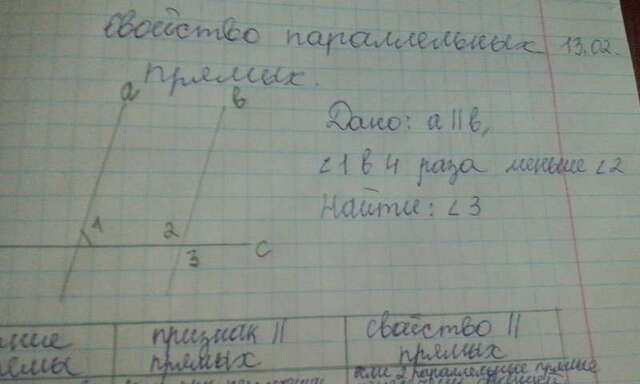 свойство параллельных 13.02.
прямых.
a
в
Дано: a || в,
∠1 в 4 раза меньше ∠2
Найти: ∠3
1
2
3
c
признак ||
прямых
свойство ||
прямых
2 параллельные прямые